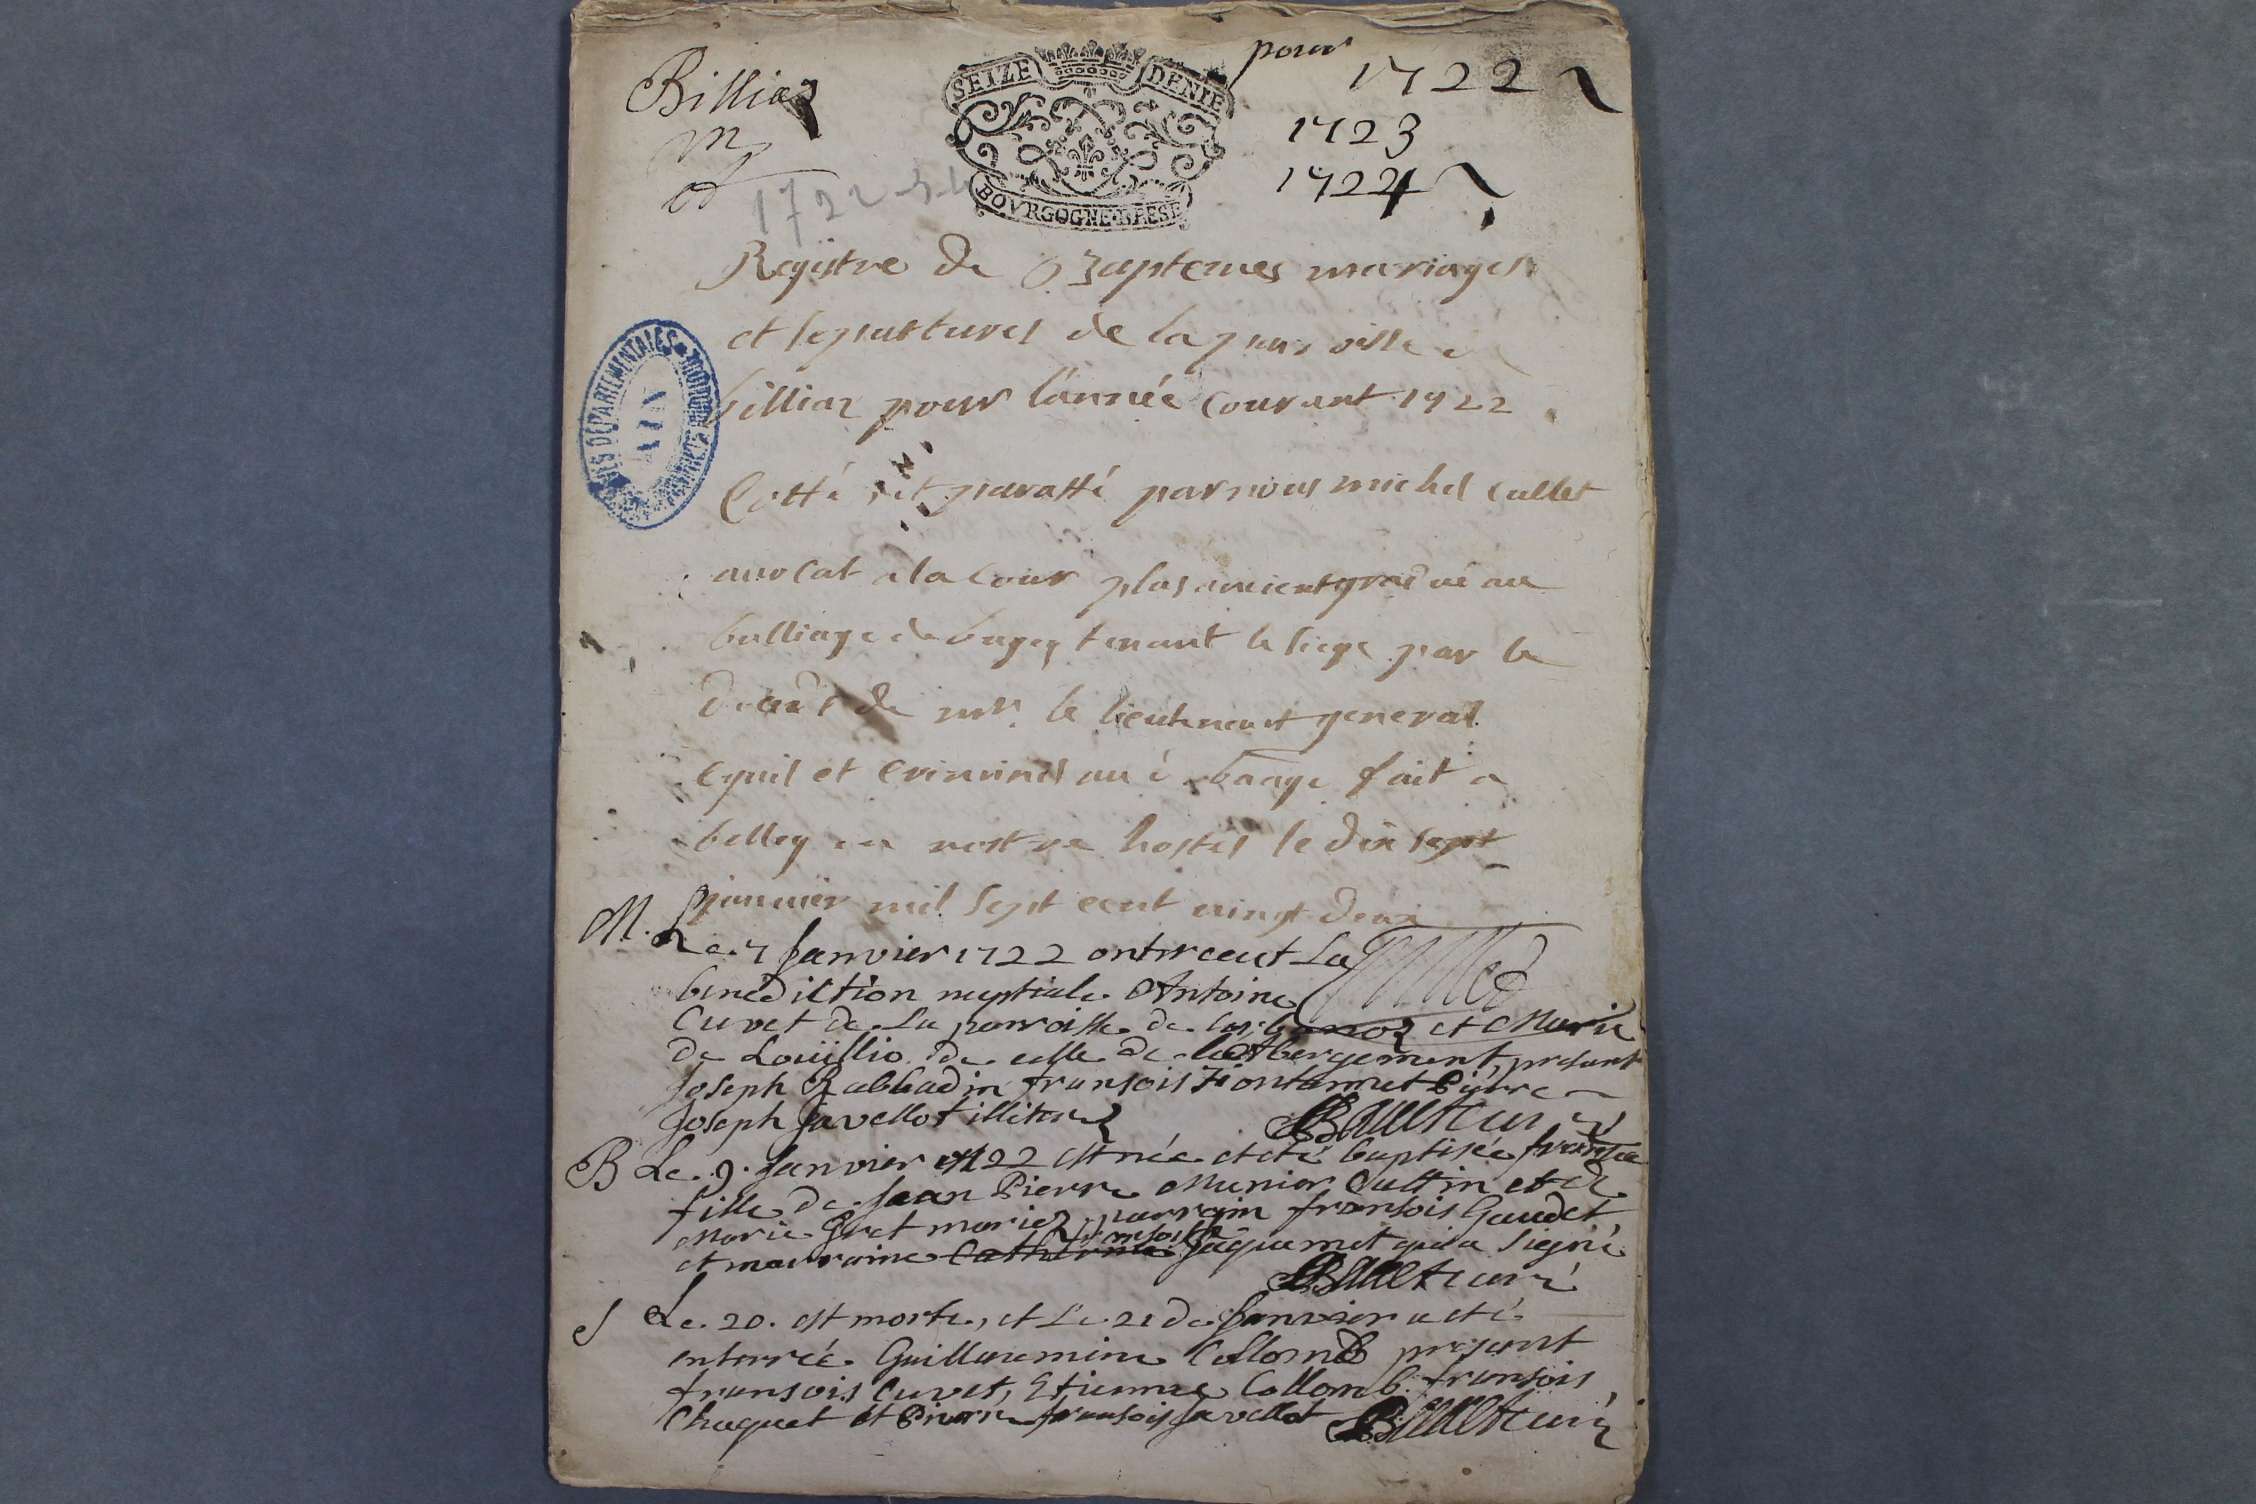 Billiaz
pour 1722
1723
1724
SEIZE DENIE
BOVRGOGNE BRESE
1722-3-4
Registre de Baptemes mariages
et sepultures de la
billiaz pour l'année courant 1722
ARCHIVES DEPARTEMENTALES
AIN
Cotté et paraffé par nous michel Callet
avocat a la cour plus ancient gradué au
balliage de bugey tenant le siege par le
deceds de mr. le lieutenant general
cyvil et criminel au baage fait a
belley en nostre hostel le dix sept
janvier mil sept cent vingt deux
M. Le 7 Janvier 1722 ont receut La
benediction nuptiale Antoine
Cuvet de La parroisse de et Marie
de Loüillio de celle de l'Abergement, présent
Joseph Rabbadin fransois Fiontamet Pierre
Joseph Javellot illiterez
Ballet curé
B Le 9. Janvier 1722 est née et eté baptisée fransoise
fille de Jean Pierre Munier Cultin et de
Marie Gret mariez, parrain fransois Gaudet
et marraine Catherine fransoise Jaquemet qui a signé
Ballet curé
S Le 20. est morte, et Le 21 de Janvier a eté
enterrée Guillaumine Collomb présent
fransois Cuvet, Etienne Collomb, fransois
Chaquet et Pierre fransois Javellot Ballet curé